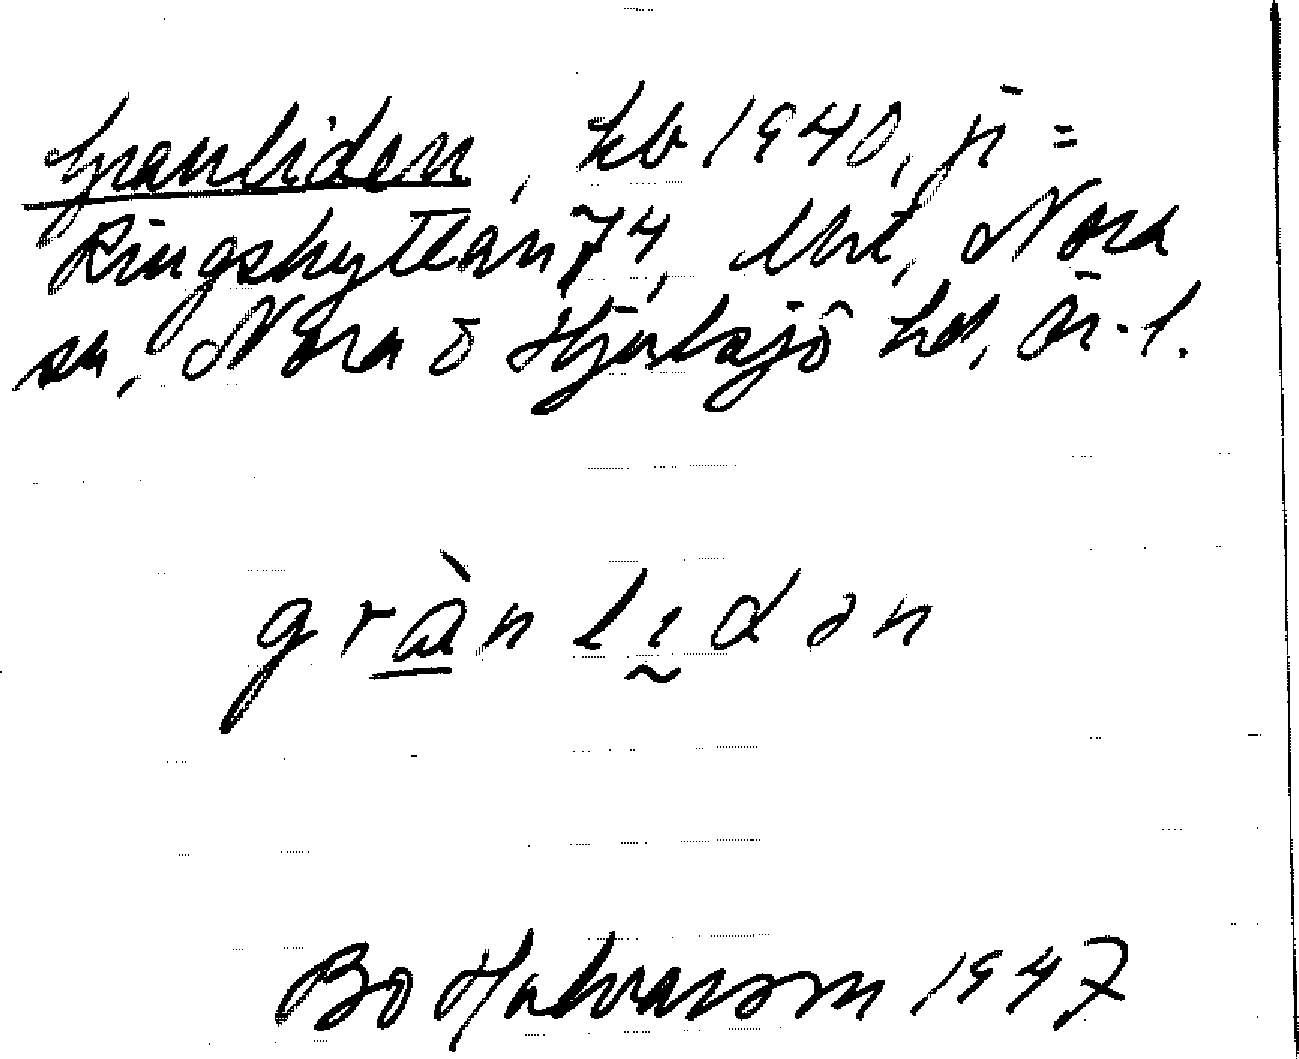 Granliden, kb 1940, ji =
Ringshyttan 74, Nora
sn, Nora o Hjulsjö hd, Ör.l.
grànlidən
Bo Halvarsson 1947